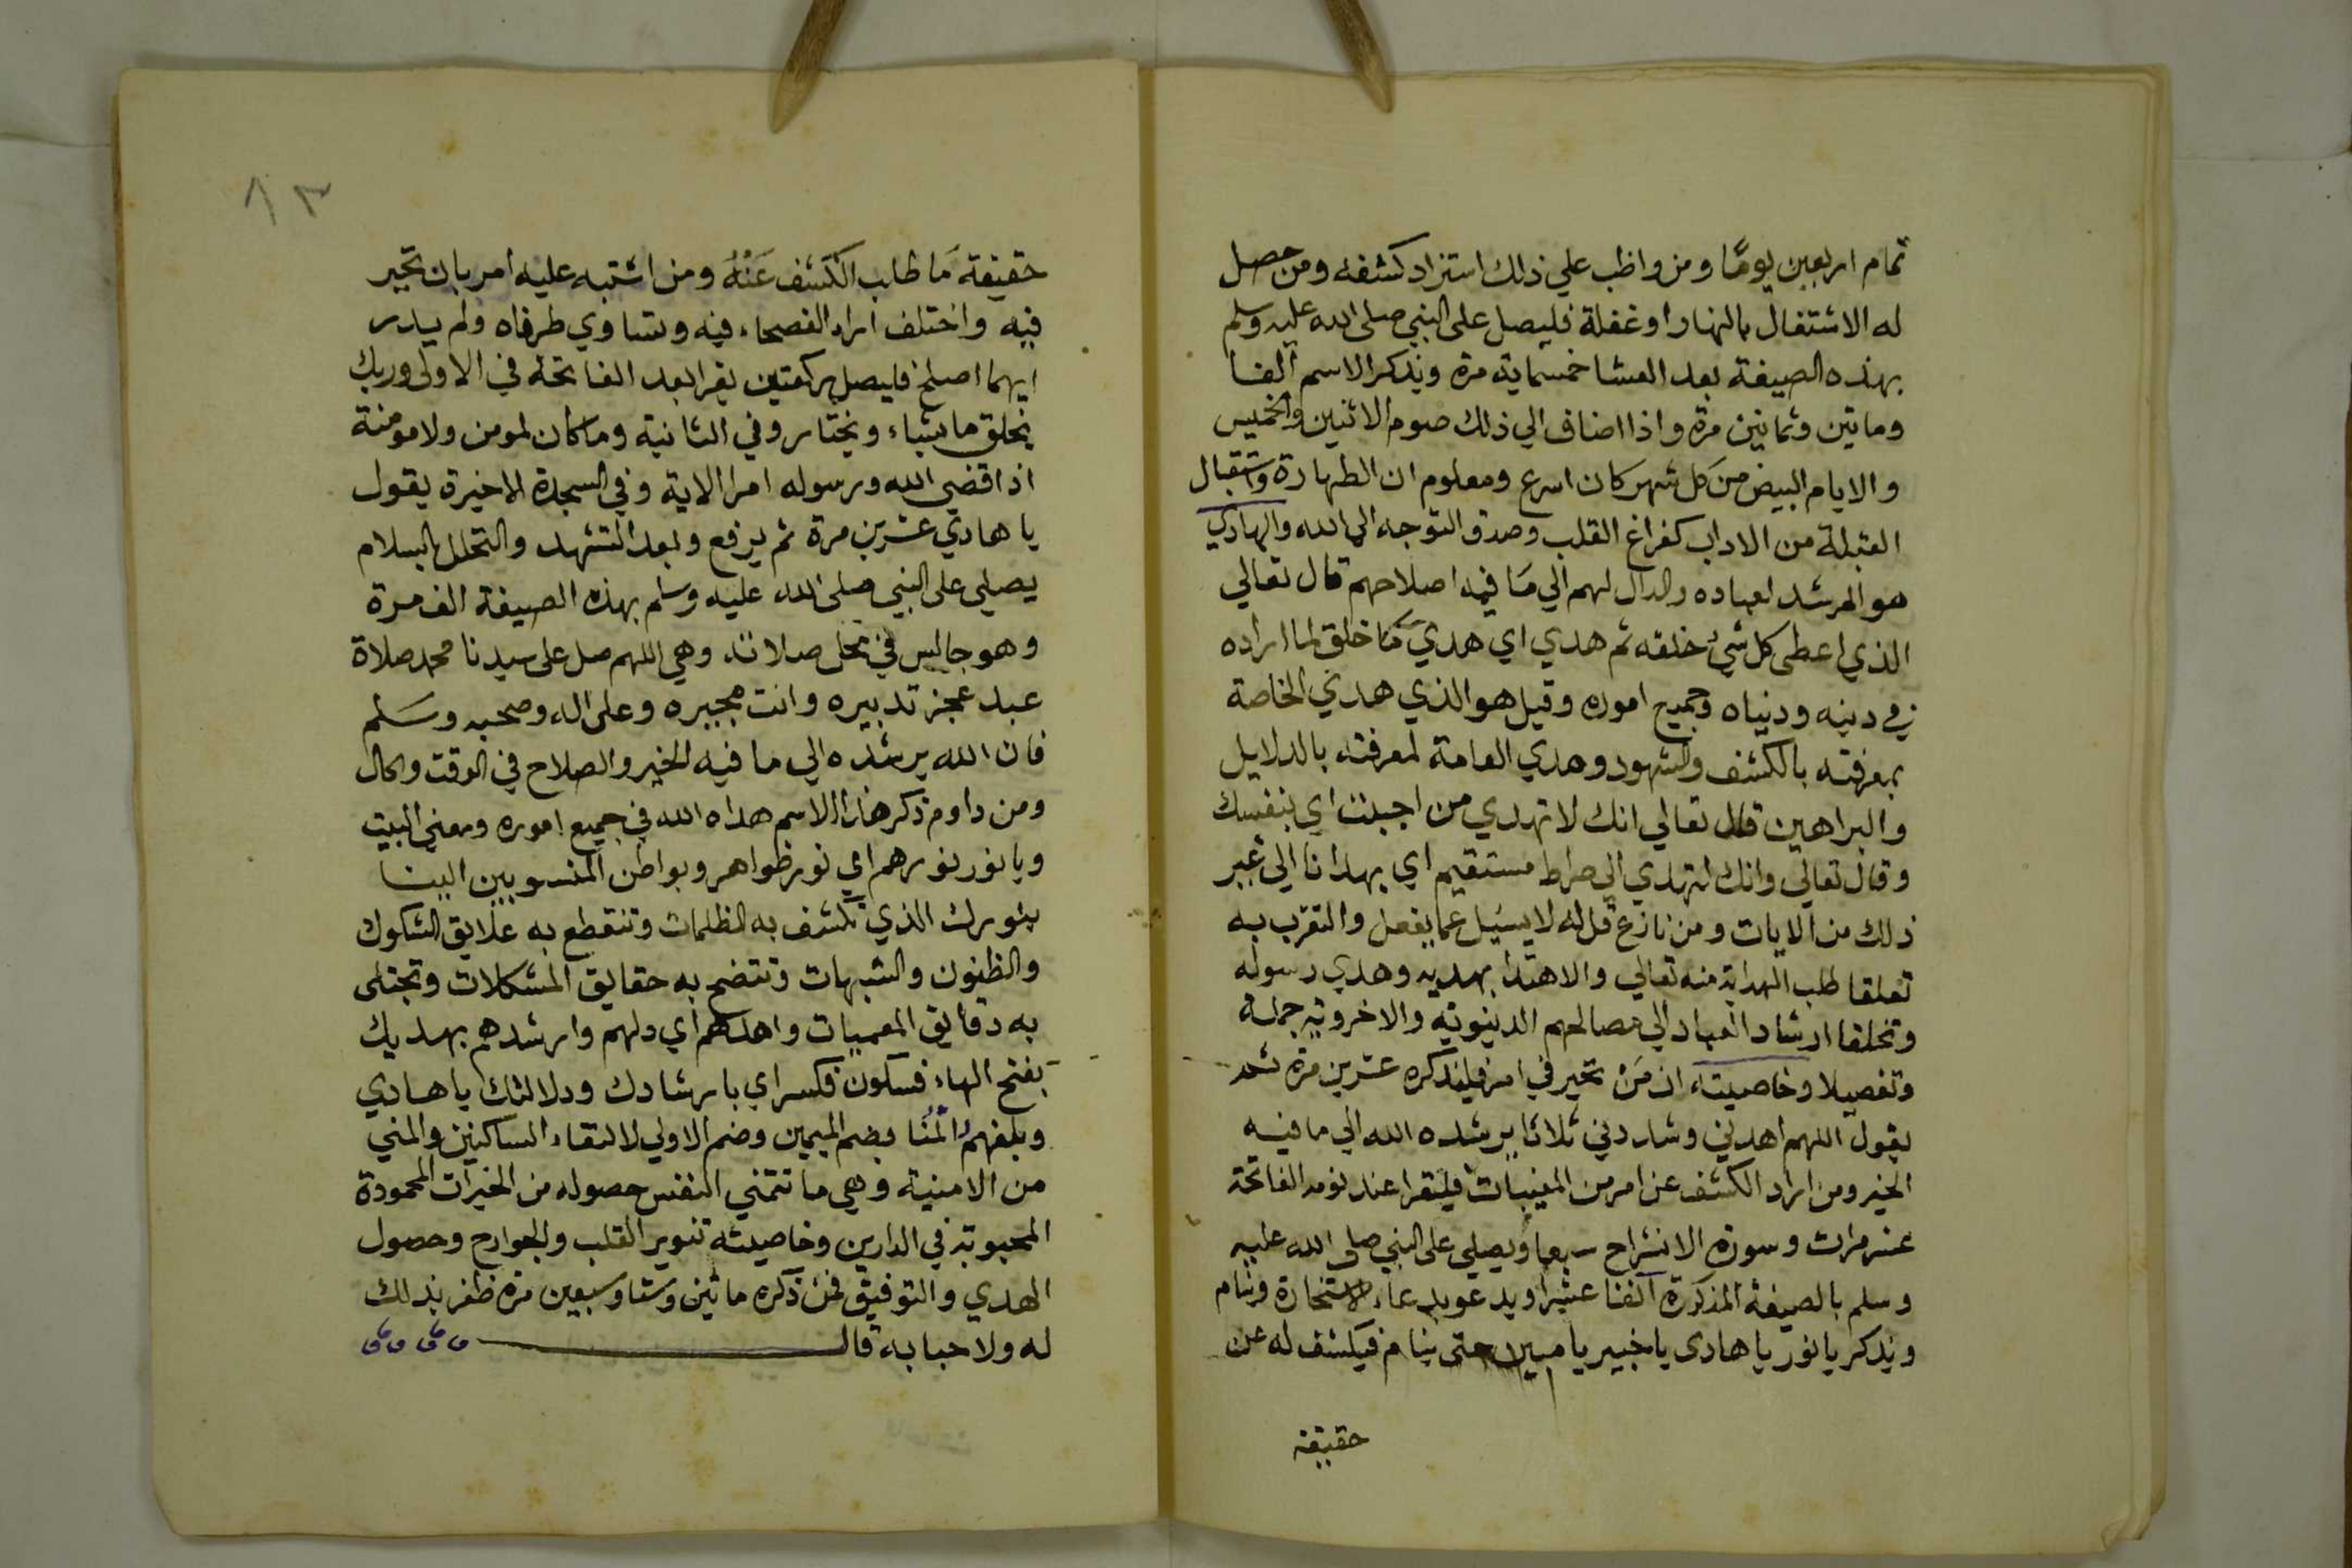 تمام اربعين يومًا ومن واظب علي ذلك استزاد كشفه ومن حصل
له الاشتغال بالنهار او غفلة فليصل على النبي صلى الله عليه وسلم
بهذه الصيغة بعد العشا خمسماية مرة ويذكر الاسم الفا
وماتين وثمانين مرة واذا اضاف الي ذلك صوم الاثنين والخميس
والايام البيض من كل شهر كان اسرع ومعلوم ان الطهارة واستقبال
القبلة من الاداب كفراغ القلب وصدق التوجه الى الله والهادي
هو المرشد لعباده والدال لهم الي ما فيه اصلاحهم قال تعالي
الذي اعطى كل شيء خلقه ثم هدي اي هدي ما خلق لما اراده
في دينه ودنياه وجميع اموره وقيل هو الذي هدي الخاصة
بمعرفته بالكشف والشهود وهدي العامة لمعرفته بالدلايل
والبراهين قال تعالي انك لا تهدي من احببت اي بنفسك
وقال تعالي وانك لتهدي الي صراط مستقيم اي بهدانا الي غير
ذلك من الايات ومن نازع قل له لا يسيل عما يفعل والتقرب به
تعلقا طلب الهداية منه تعالي والاهتدا بهديه وهدي رسوله
وتخلقا ارشاد العباد الي مصالحهم الدنيوية والاخروية جملة
وتفصيلا وخاصيته ان من تحير في امر فليذكره عشرين مرة ثم
يقول اللهم اهدني وشاردني ثلاثا يرشده الله الي ما فيه
الخير ومن اراد الكشف عن امر من المغيبات فليقرا عند نومه الفاتحة
عشر مرات وسورة الانشراح سبعا ويصلي على النبي صلى الله عليه
وسلم بالصيغة المذكورة الفا عشرا ويدعو بدعاء الاستخارة وينام
ويذكر يا نور يا هادى يا خبير يا مبين حتى ينام فيكشف له عن
حقيقة
٨٣
حقيقة ما طلب الكشف عَنْهُ ومن اشتبه عليه امر بان تحير
فيه واختلف اراد الفصحاء فيه وتساوي طرفاه ولم يدر
ايهما اصلح فليصل ركعتين يقرا بعد الفاتحة في الاولى وربك
يخلق ما يشاء ويختار وفي الثانية وما كان لمومن ولا مومنة
اذا قضي الله ورسوله امرا الاية وفي السجدة الاخيرة يقول
يا هادي عشرين مرة ثم يرفع وبعد التشهد والتحلل بالسلام
يصلي على النبي صلى الله عليه وسلم بهذه الصيغة الف مرة
وهو جالس في محل صلاته وهي اللهم صل على سيدنا محمد صلاة
عبد عجز تدبيره وانت مجيره وعلى اله وصحبه وسَلم
فان الله يرشده الي ما فيه الخير والصلاح في الوقت والحال
ومن داوم ذكر هذا الاسم هداه الله في جميع اموره ومعني البيت
ويا نور نورهم اي نور ظواهر وبواطن المنسوبين الينا
بنورك الذي تكشف به الظلمات وتنقطع به علايق الشكوك
والظنون والشبهات وتتضح به حقايق المشكلات وتجتلى
به دقايق المعميات واهدهم اي دلهم وارشدهم بهديك
بفتح الهاء فسكون فكسر اي بارشادك ودلالتك يا هادي
وبلغهم المُنا بضم الميمين وضم الاولي لالتقاء الساكنين والمني
من الامنية وهي ما تتمني النفس حصوله من الخيرات المحمودة
المحبوبة في الدارين وخاصيته تنوير القلب والجوارح وحصول
الهدي والتوفيق فمن ذكره ماتين وستا وسبعين مرة ظفر بذلك
له ولاحبابه قال